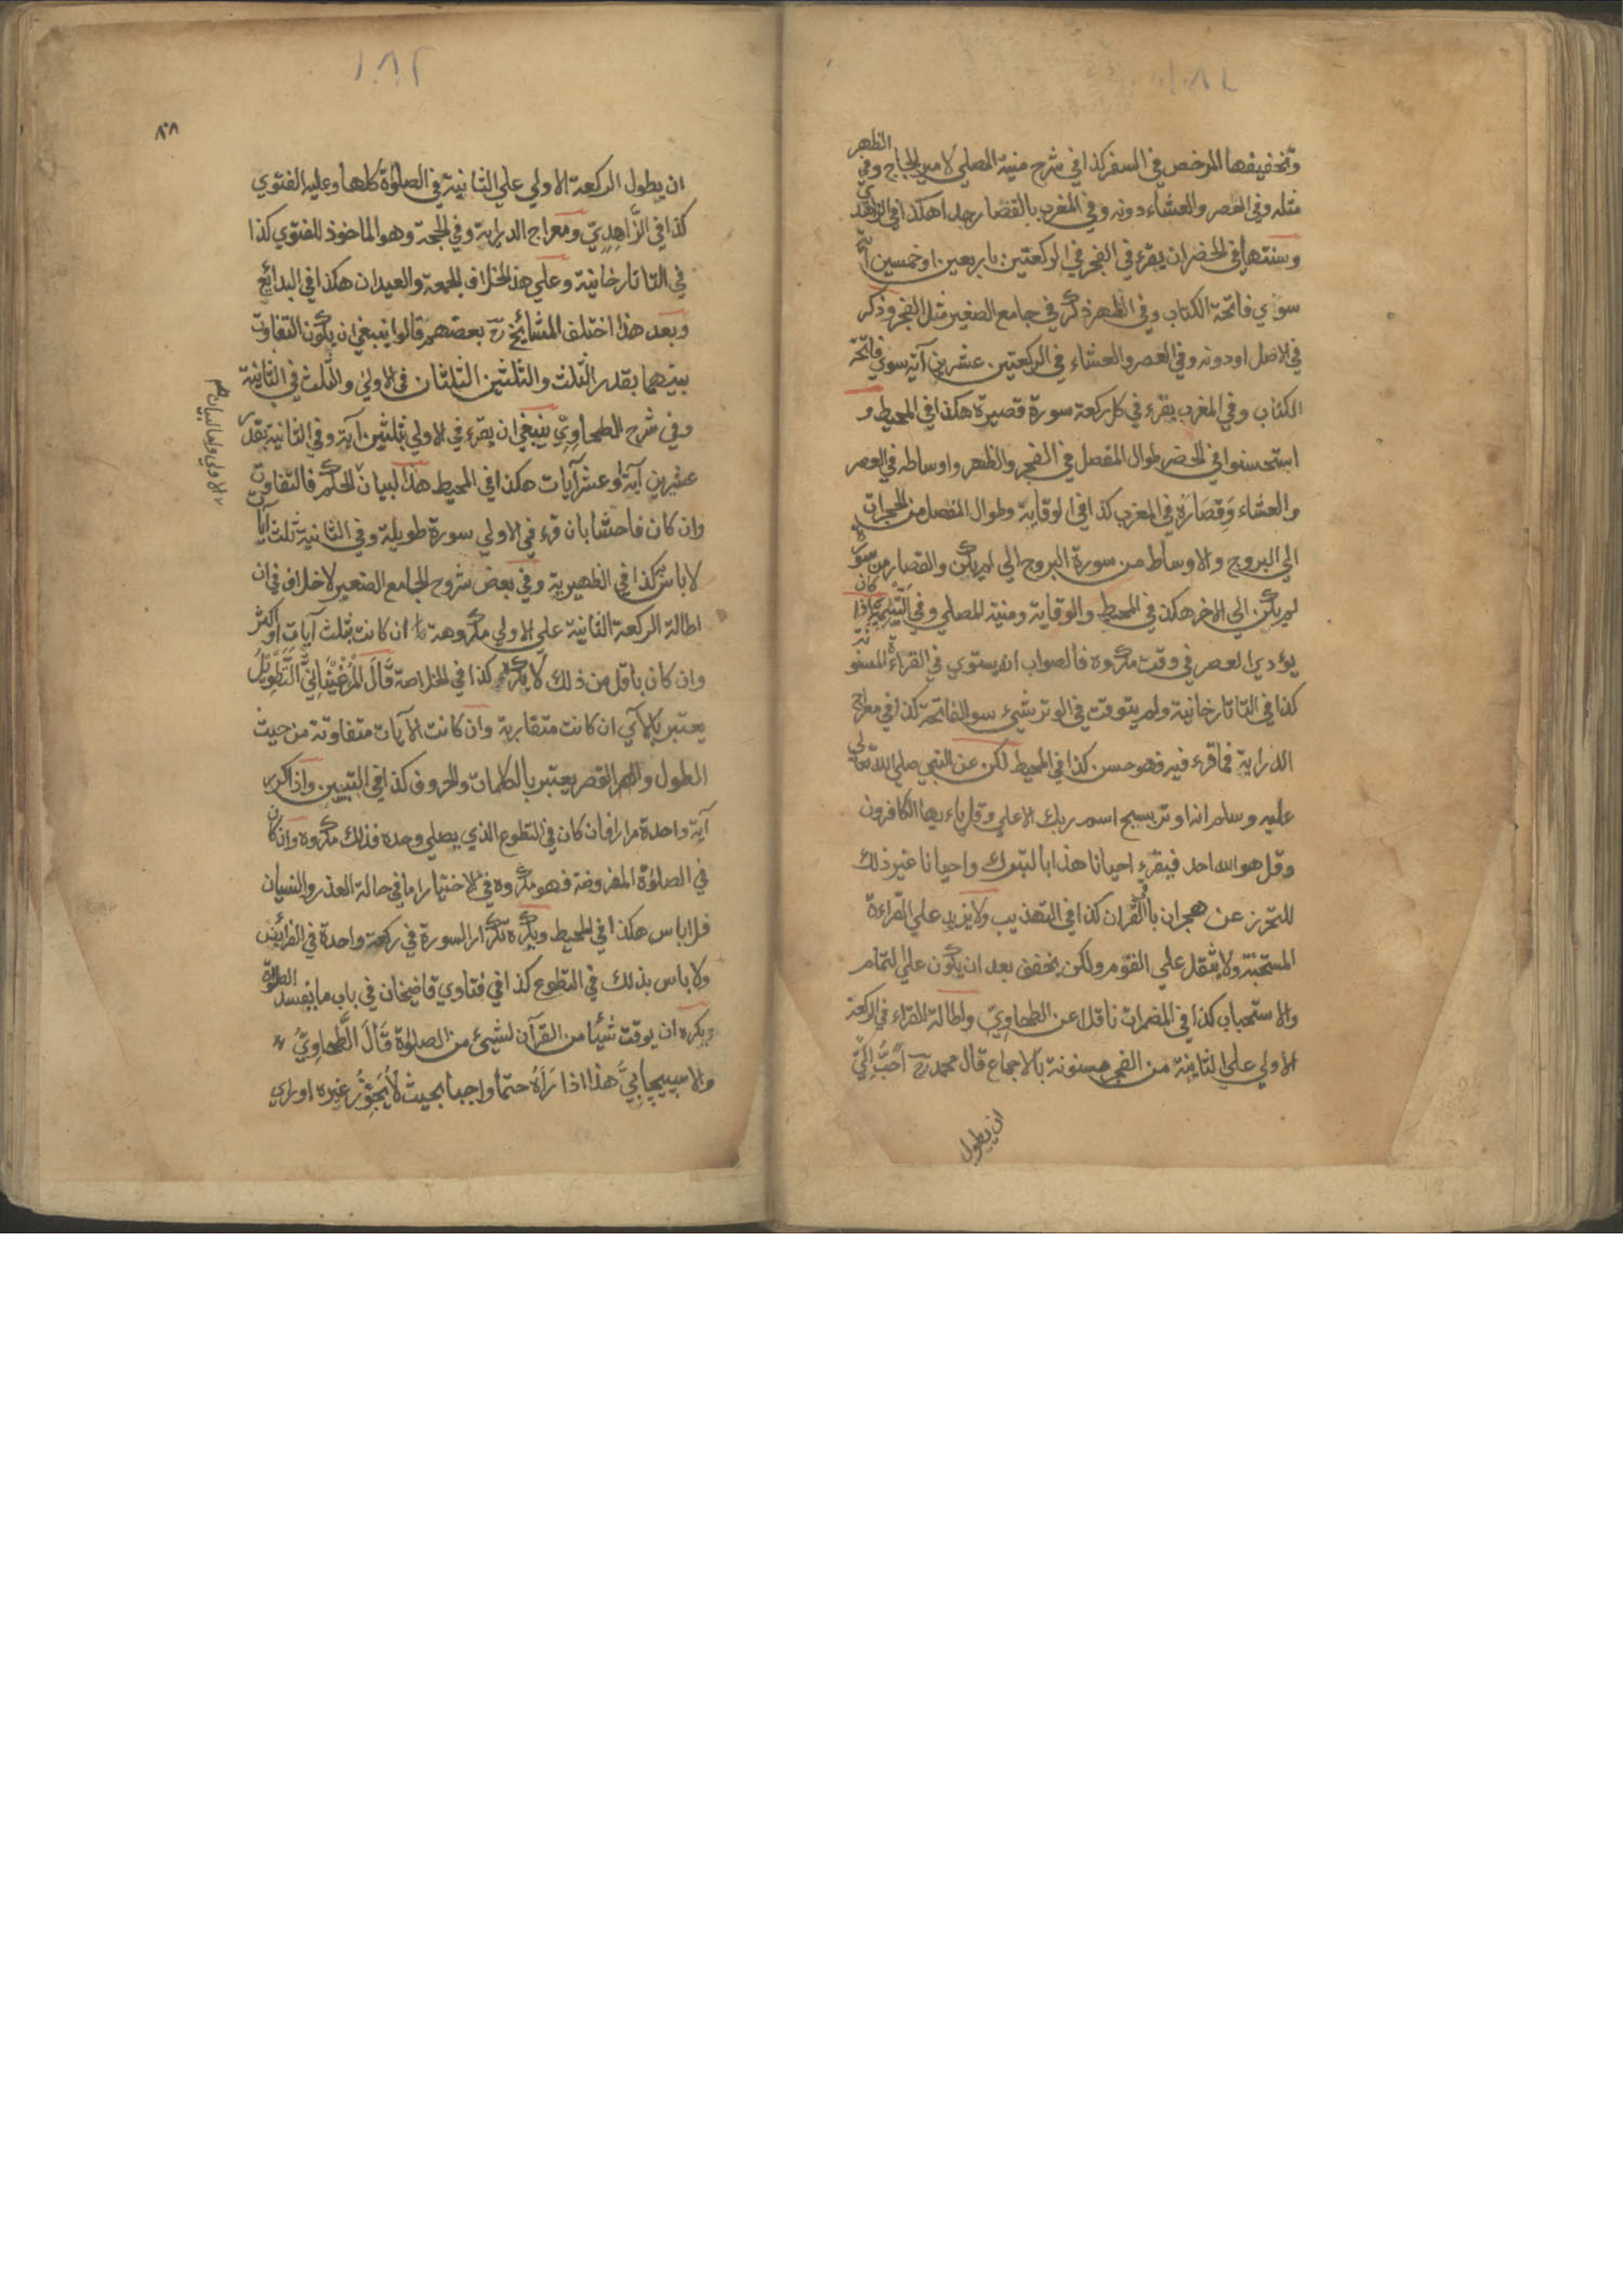 وتخفيفها المرخص في السفر كذا في شرح منية المصلي لامير الحاج وفي الظهر
مثله وفي العصر والعشاء دونه وفي المغرب بالقصار جدا هكذا في الزاهدي
وسنتها في الحضر ان يقرء في الفجر في الركعتين باربعين او خمسين آية
سوي فاتحة الكتاب وفي الظهر ذكر في جامع الصغير مثل الفجر وذكر
في الاصل او دونه وفي العصر والعشاء في الركعتين عشرين آية سوي فاتحة
الكتاب وفي المغرب يقرء في كل ركعة سورة قصيرة هكذا في المحيط و
استحسنوا في الحضر طوال المفصل في الفجر والظهر واوساطه في العصر
والعشاء وقصاره في المغرب كذا في الوقاية وطوال المفصل من الحجرات
الي البروج والاوساط من سورة البروج الي لم يكن والقصار من سورة
لم يكن الي الاخر هكذ في المحيط والوقاية ومنية المصلي وفي اليتيمة اذا كان
يؤدي العصر في وقت مكروه فالصواب ان يستوي في القراءة المسنونة
كذا في التاتارخانية ولم يتوقت في الوتر شيء سوالفاتحة كذا في معراج
الدراية فما قرء فيه فهو حسن كذا في المحيط لكن عن النبي صلي الله تعالي
عليه وسلم انه اوتر بسبح اسم ربك الاعلي وقل ياءيها الكافرون
وقل هو الله احد فيقرء احيانا هذا بالتبرك واحيانا غير ذلك
للتحرز عن هجران باقي القران كذا في التهذيب ولا يزيد علي القراءة
المستحبة ولا يثقل علي القوم ولكن يخفف بعد ان يكون علي التمام
والاستحباب كذا في المضمرات ناقلا عن الطحاوي واطالة القراء في الركعة
الاولي علي الثانية من الفجر مسنونة بالاجماع قال محمد رح احب الي
ان يطول
٨٠٨
ان يطول الركعة الاولي علي الثانية في الصلوة كلها وعليه الفتوي
كذا في الزاهدي ومعراج الدراية وفي الحجة وهو الماخوذ للفتوي كذا
في التاتارخانية وعلي هذ الخلاف الجمعة والعيدان هكذا في البدائع
وبعد هذا اختلف المشائخ رح بعضهم قالوا ينبغي ان يكون التفاوت
بينهما بقدر الثلث والثلثين الثلثان في الاولي والثلث في الثانية
وفي شرح الطحاوي ينبغي ان يقرء في الاولي بثلثين آية وفي الثانية بقدر
عشرين آية او عشر آيات هكذا في المحيط هذا البيان للحكم فالتفاوت
وان كان فاحشا بان قرء في الاولي سورة طويلة وفي الثانية ثلث آيات
لا باس كذا في الظهيرية وفي بعض شروح الجامع الصغير لا خلاف في ان
اطالة الركعة الثانية علي الاولي مكروهة ان كانت بثلث آيات او اكثر
وان كان باقل من ذلك لا يكره كذا في الخلاصة قال المرغيناني التطويل
يعتبر بالآي ان كانت متقاربة وان كانت الآيات متفاوتة من حيث
الطول والقصر يعتبر بالكلمات والحروف كذا في التبيين واذا كرر
آية واحدة مرارا فان كان في التطوع الذي يصلي وحده فذلك مكروه وان كان
في الصلوة المفروضة فهو مكروه في الاختيار اما في حالة العذر والنسيان
فلا باس هكذا في المحيط ويكره تكرار السورة في ركعة واحدة في الفرائض
ولا باس بذلك في التطوع كذا في فتاوي قاضيخان في باب ما يفسد الصلوة
ويكره ان يوقت شيئا من القرآن لشيء من الصلوة قال الطحاوي
والاسبيجابي هذا اذا رآه حتما واجبا بحيث لا يجوز غيره او راي